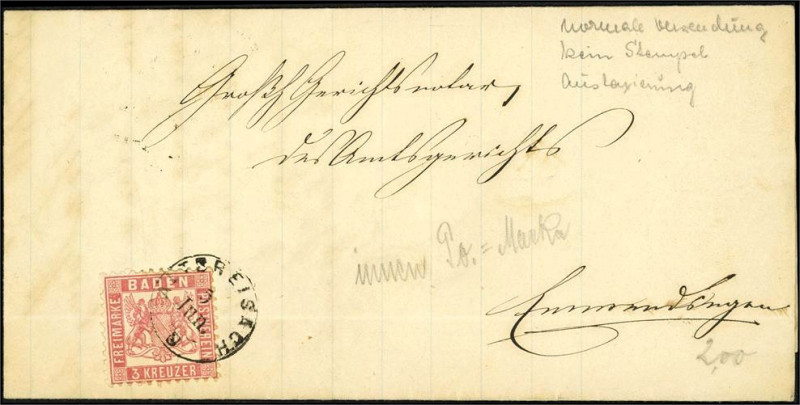 normale Verwendung
kein Stempel
Austaxierung
Großh Gerichtsnotar,
des Amtsgerichts
innen Po.=Marke
Emmendingen
2,00
BADEN
FREIMARKE
POSTVEREIN
3 KREUZER
BREISACH
JUN